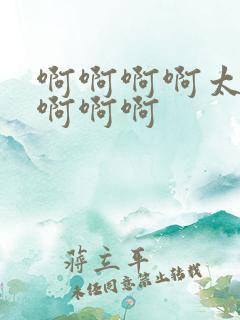 啊啊啊啊太
啊啊啊
蒋立平
未经同意禁止转载